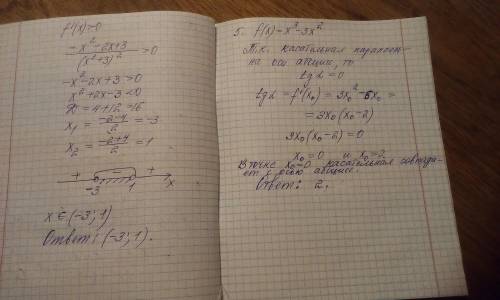 f'(x)>0
-x²-2x+3 / (x²+3)² >0
-x²-2x+3>0
x²+2x-3<0
D=4+12=16
x₁ = -2-4 / 2 = -3
x₂ = -2+4 / 2 = 1
+ - +
-3 1 x
x∈(-3; 1)
Ответ: (-3; 1).
5. f(x)=x³-3x²
Т.к. касательная параллель-
на оси абсцисс, то
tg α = 0
tg α = f'(x₀) = 3x₀²-6x₀ =
= 3x₀(x₀-2)
3x₀(x₀-2)=0
x₀=0 и x₀=2
В точке x₀=0 касательная совпада-
ет с осью абсцисс.
Ответ: 2.